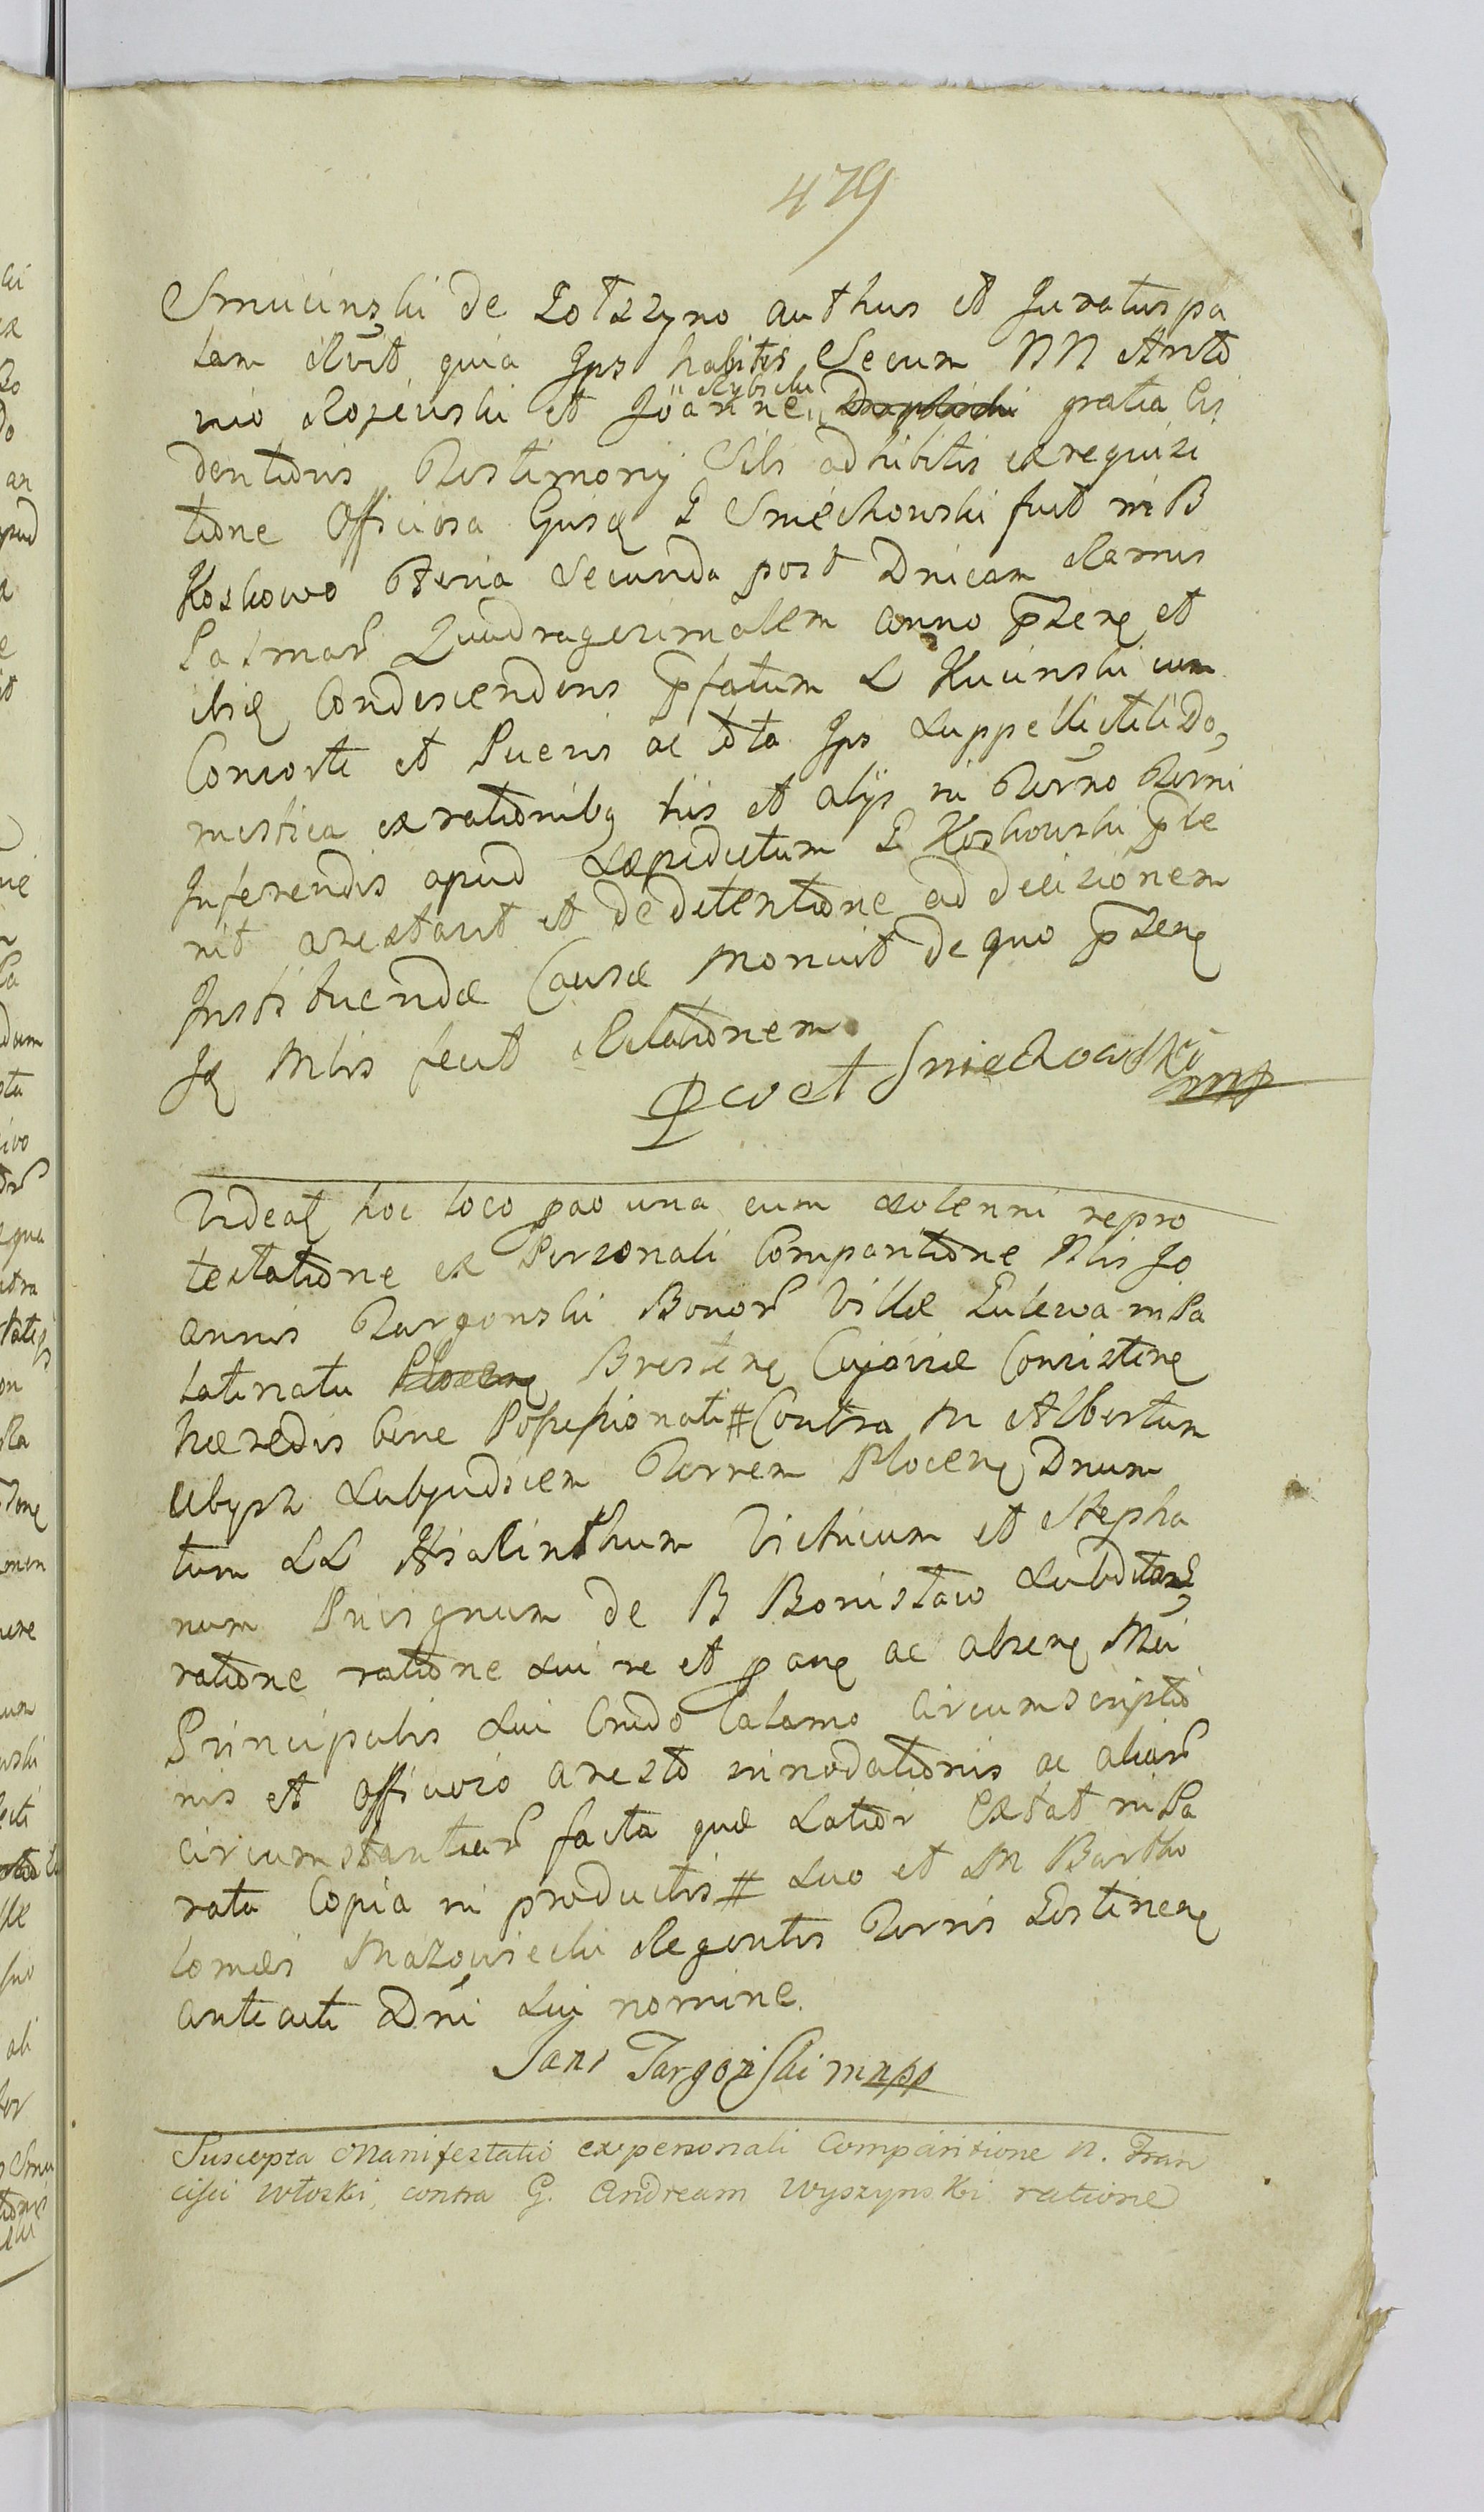 479
Smucinski de Lotszyno authus et Juratus pa
lam rlvit quia Ips habitis Secum NN Anto
nio Rozenski et Joanne Rybicki gratia Eis
dentioris Testimonij Sibi adhibitis ex requisi
tione Officiosa Ejusq L Sniechowski fuit in B
Koskowo Feria Secunda post Dnicam Ramis
Palmar Quadragesimalem anno pntzens et
ibiq Condescendens pfatum L Kucinski cum
Consorte et Pueris ac tota Ips Suppellictili Do
mestica ex rationibq his et alijs in Termo Termi
Inferendis apud Saepedictum L Koskowski ple
nit arestavit et de detentione ad decisionem
Instituendae Causae Monuit de quo pntzens
Iq Mlis fecit Relationem
Pawet Sniechowski mp
Videat hoc loco pao una cum Solenni repro
testatione ex Personali Comparitione Nlis Jo
annis Targonski Bonor Villae Lulewa in Pa
latinatu Brestens Cujaviae Consistens
haeredis bene Possessionati # Contra M Albertum
Ubysz Subjudicem Terrem Plocens Dnum
tum LL Hiacinthum Victricum et Stepha
num Privignum de B Bonislaw Subditos
ratione ratione Sui re et pane ac absens Mei
Principalis Sui Crudo Calamo Circumscriptio
nis et officioso aresto innodationis ac aliar
circumstantiar facta quae Latior Extat in Pa
rata Copia in productis # Suo et M Bartho
lomaei Mazowiecki Regentis Terris Gostinens
anteacti Dni Sui nomine.
Jans Targonski mnpp
Suscepta Manifestatio ex personali Comparitione N. Fran
cisci Wloski, contra G. Andream Wyszynski ratione